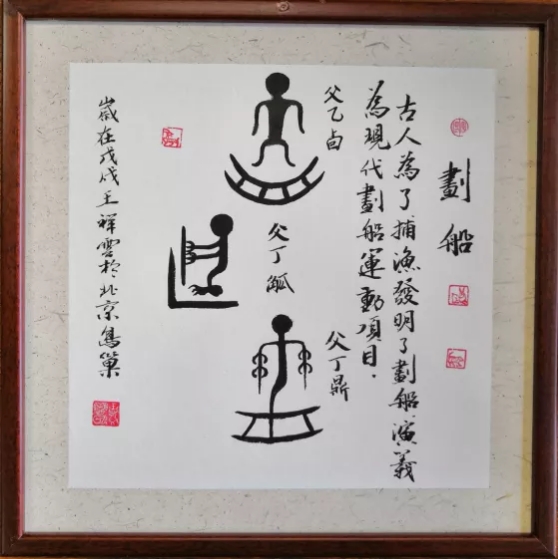 劃船
古人為了捕漁發明了劃船演義
為現代劃船運動項目.
父乙卣
父丁觚
父丁鼎
歲在戊戌王祥雲於北京鳥巢